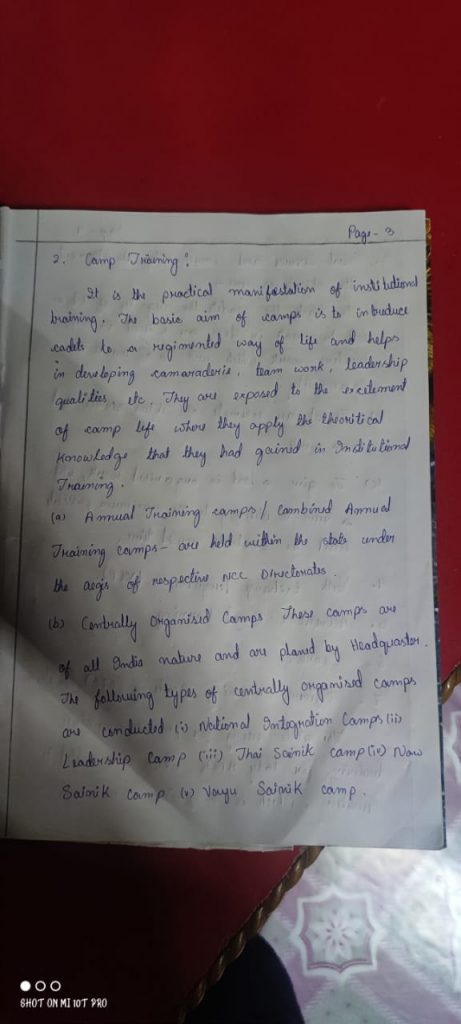 Page - 3
2. Camp Training :
It is the practical manifestation of institutional
training. The basic aim of camps is to introduce
cadets to a regimented way of life and helps
in developing camaraderie, team work, leadership
qualities, etc. They are exposed to the excitement
of camp life where they apply the theoritical
knowledge that they had gained in Institutional
Training.
(a) Annual Training camps / Combined Annual
Training camps - are held within the state under
the aegis of respective NCC Directorates
(b) Centrally Organised Camps These camps are
of all India nature and are planed by Headquarter.
The following types of centrally organised camps
are conducted (i) National Integration Camps (ii)
Leadership Camp (iii) Thai Sainik camp (iv) Naw
Sainik camp (v) Vayu Sainik camp.
SHOT ON MI 10T PRO